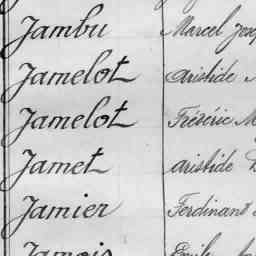 Jambu Marcel
Jamelot Aristide
Jamelot Frédéric
Jamet Aristide
Jamier Ferdinand
Jamois Emile